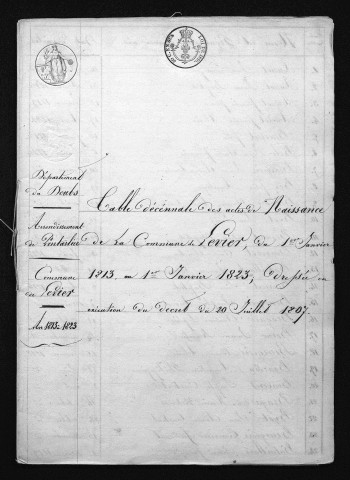 Département
du Doubs
Arrondissement
de Pontarlier
Commune
de Levier
An 1813 = 1823
Table décennale des actes de Naissance
de la Commune de Levier, du 1er Janvier
1813 au 1er Janvier 1823, dressée en
exécution du décret du 20 Juillet 1807.